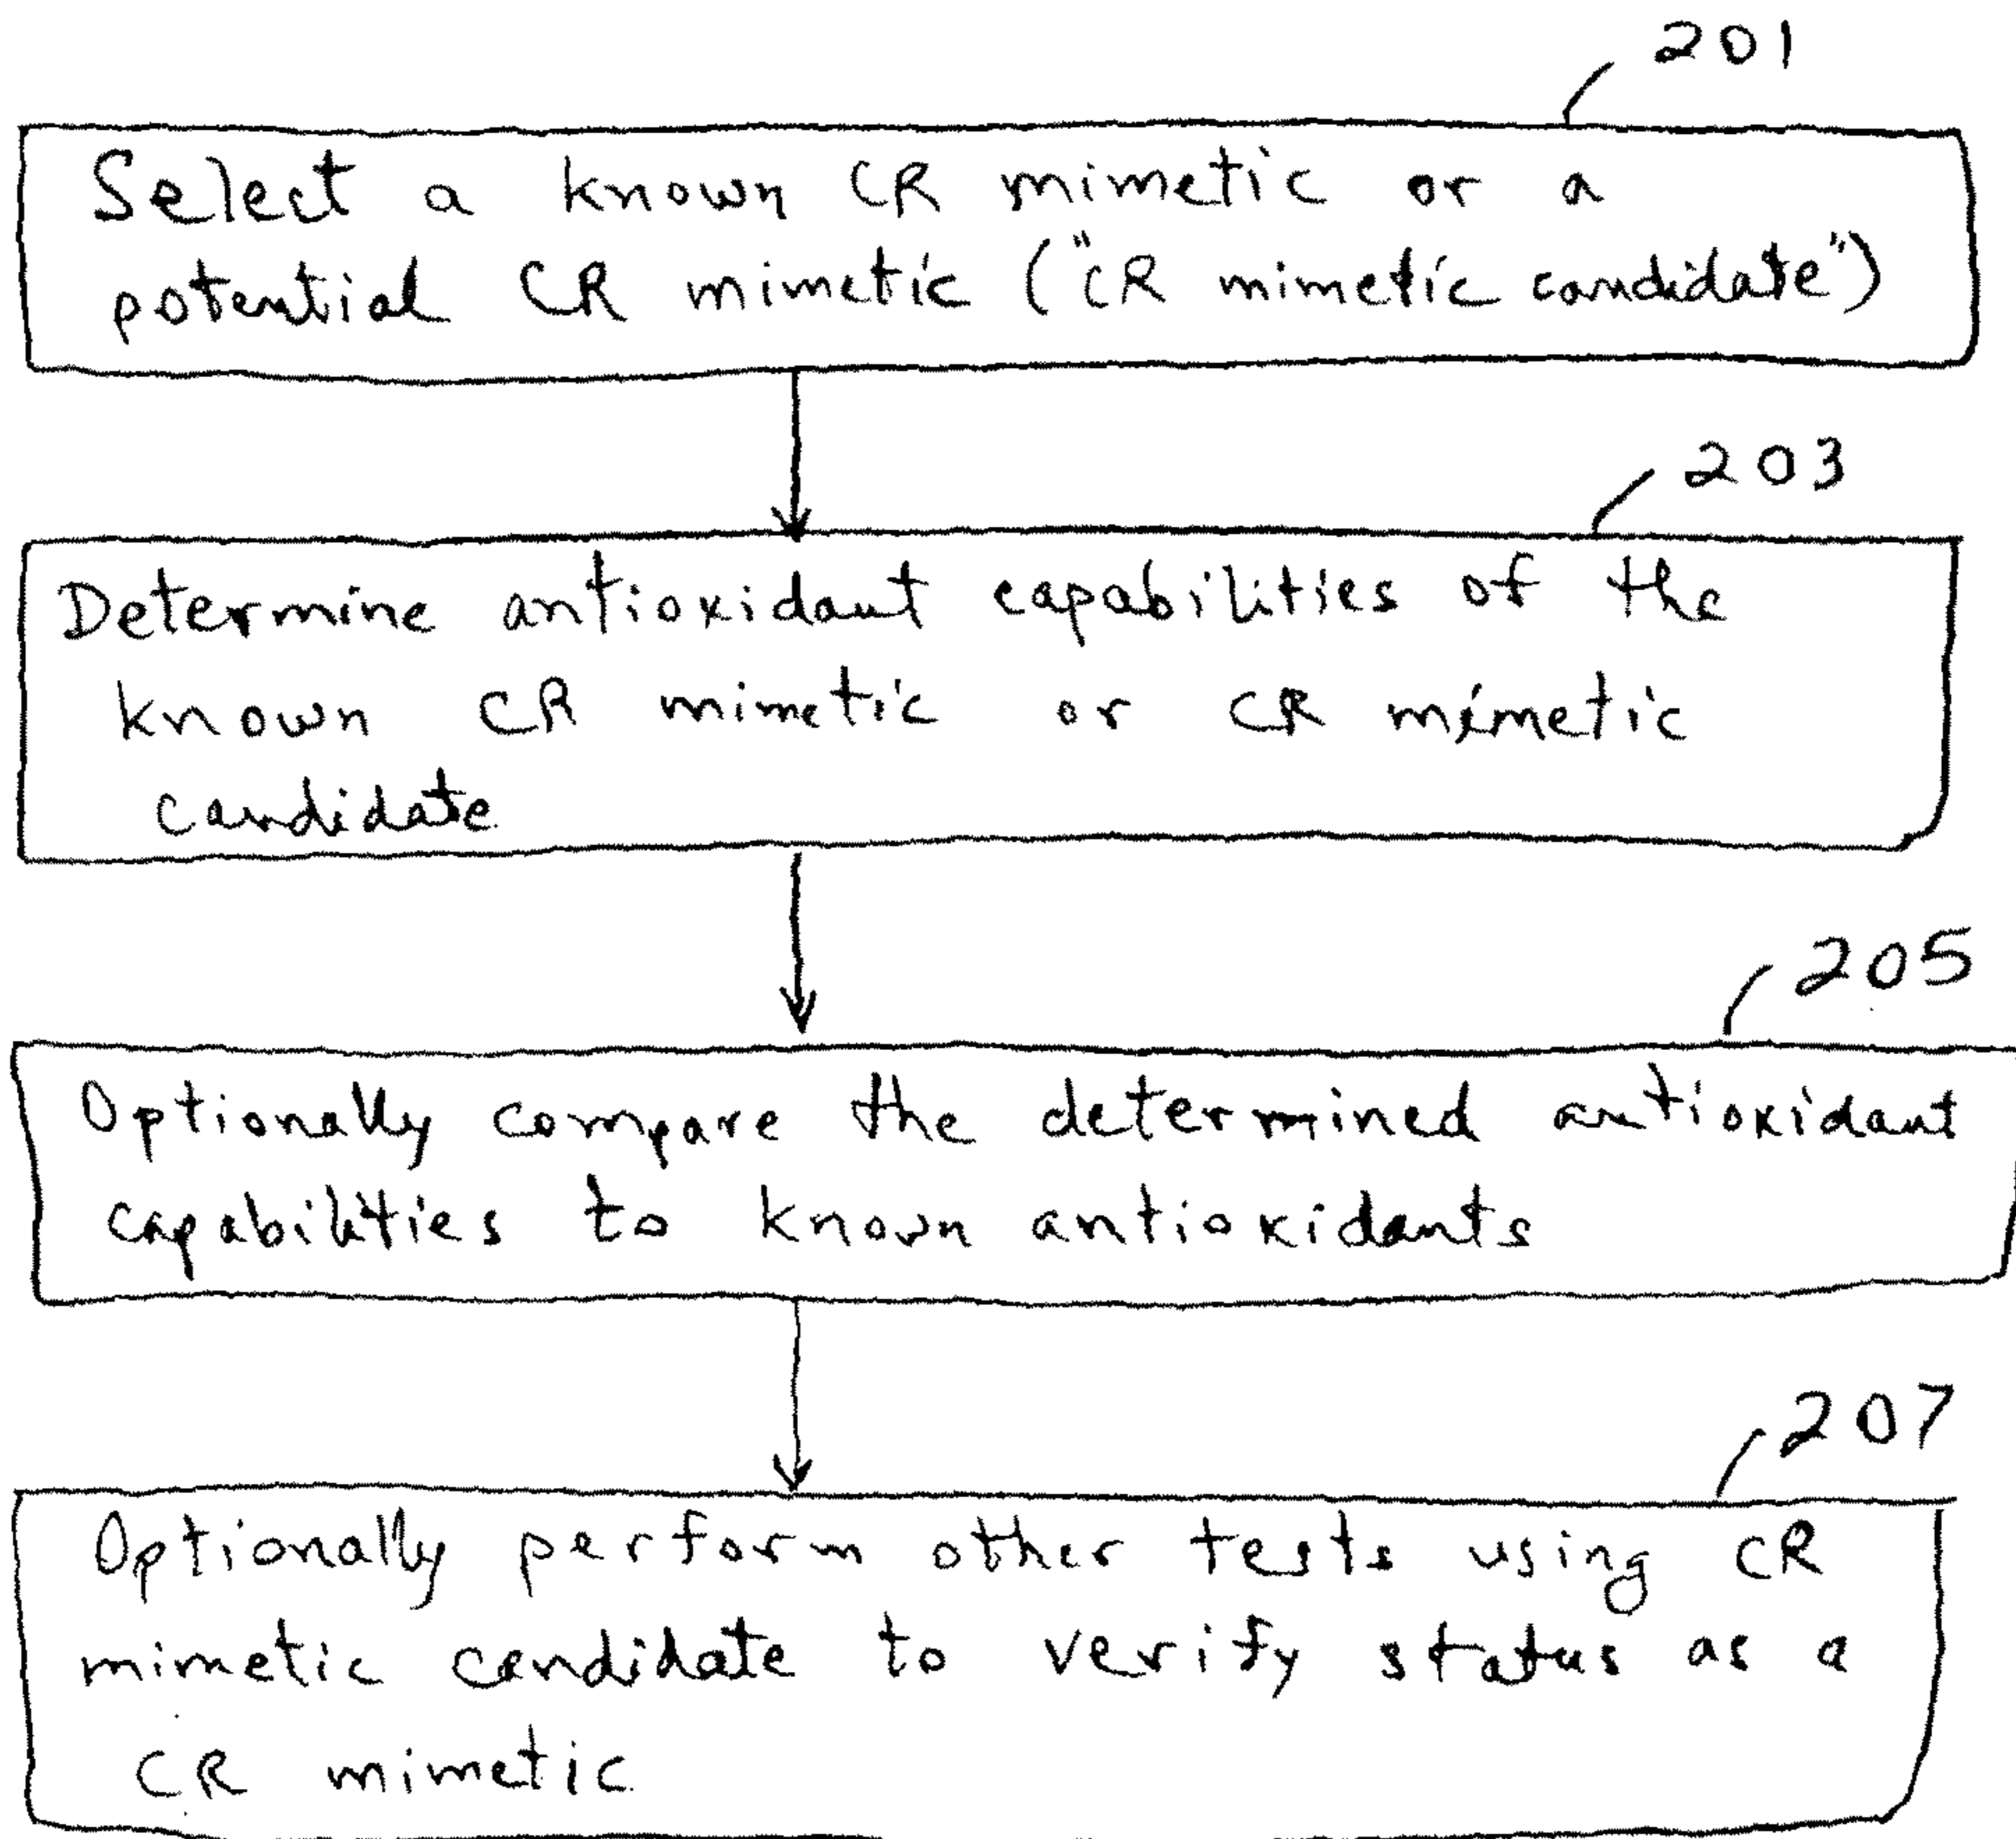 201
Select a known CR mimetic or a
potential CR mimetic ("CR mimetic candidate")
203
Determine antioxidant capabilities of the
known CR mimetic or CR mimetic
candidate
205
Optionally compare the determined antioxidant
capabilities to known antioxidants
207
Optionally perform other tests using CR
mimetic candidate to verify status as a
CR mimetic